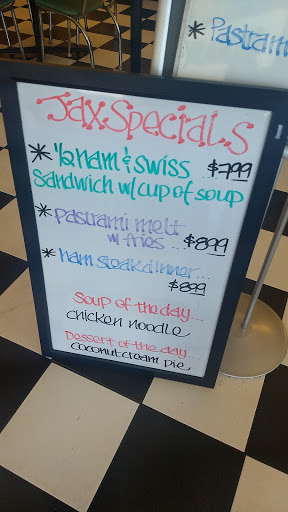 * Pastrami
Jax Specials
* 1/2 ham & swiss ... $7.99
sandwich w/ cup of soup
* pastrami melt
w/ fries ... $8.99
* ham steak dinner...
$8.99
Soup of the day...
chicken noodle
Dessert of the day...
coconut cream pie